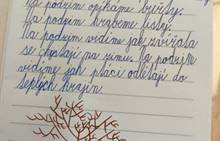 Na podzim opékáme buřty.
Na podzim hrabeme listí.
Na podzim vidíme jak zvířata
se chystají na zimu. Na podzim
vidíme jak ptáci odlétají do
teplých krajin.